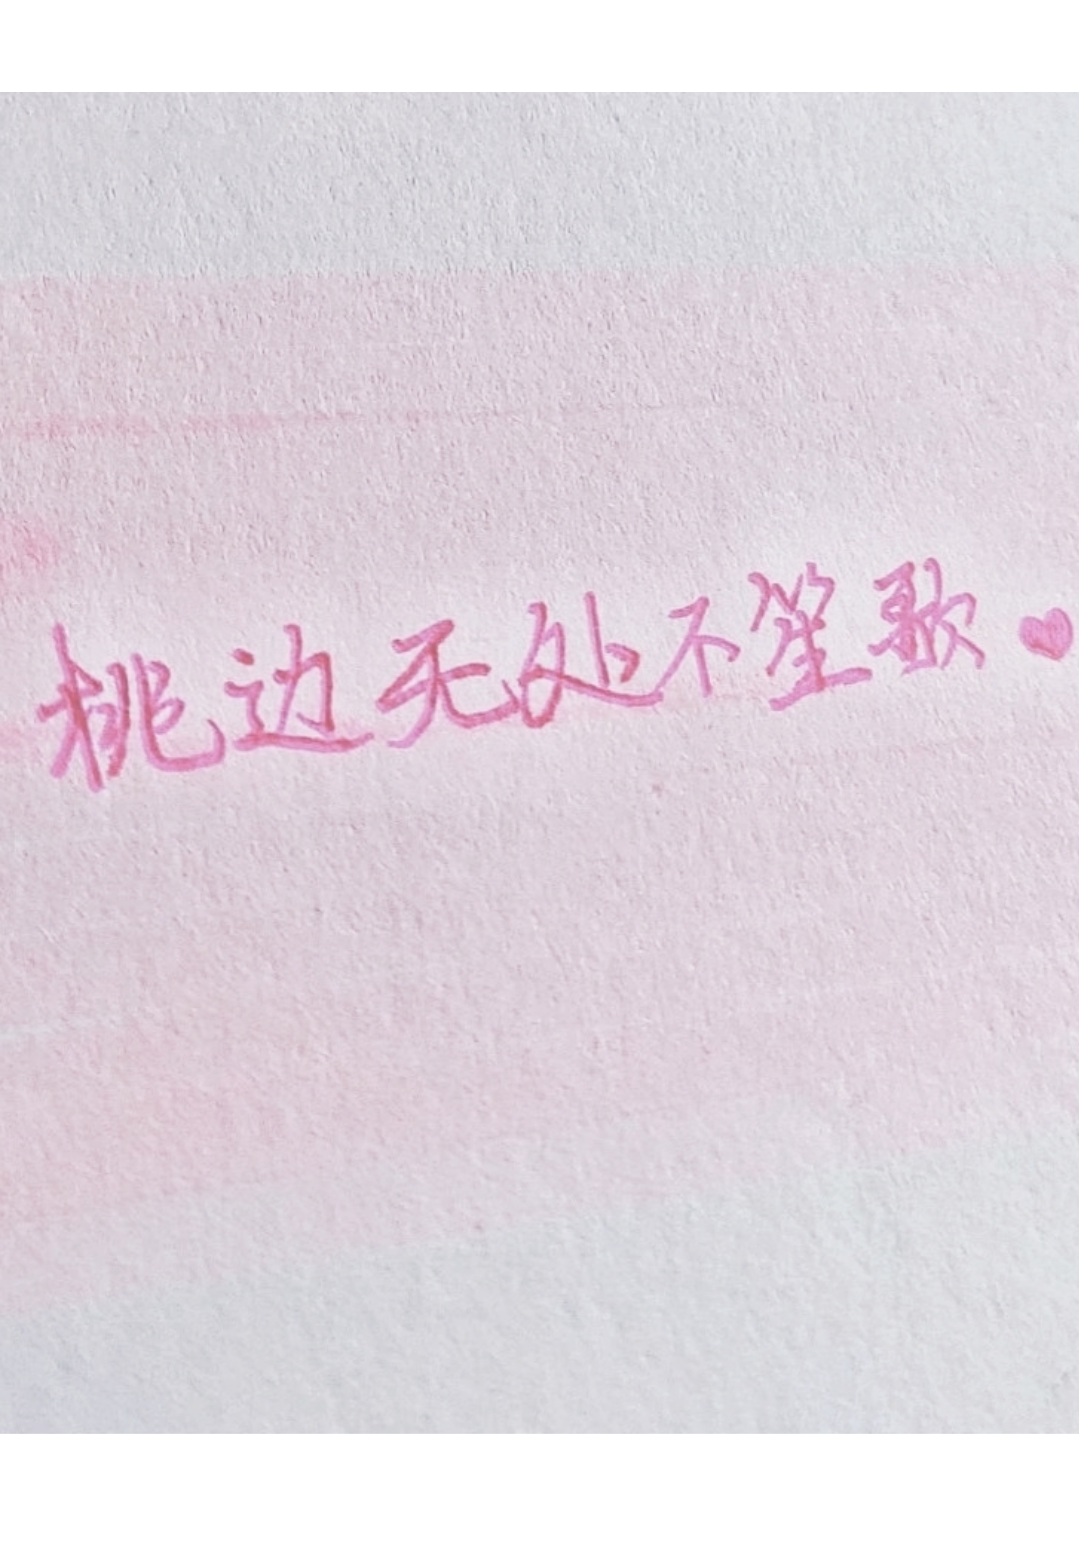 桃边无处不笙歌♥